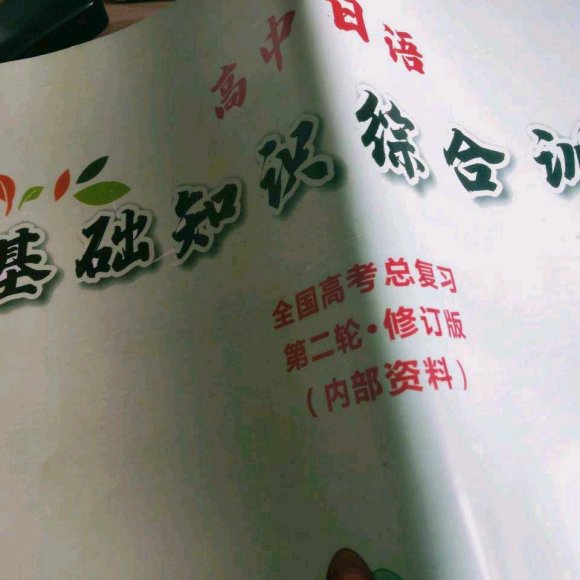 高中日语
基础知识综合训
全国高考总复习
第二轮·修订版
(内部资料)